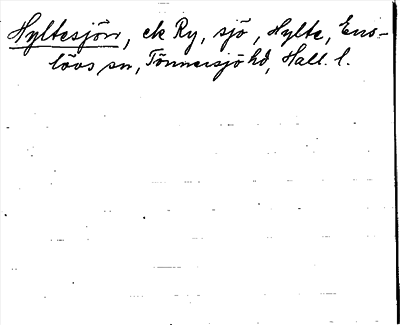 Hyltesjön, ek Ry, sjö, Hylte, Ens-
lövs sn, Tönnersjö hd, Hall. l.